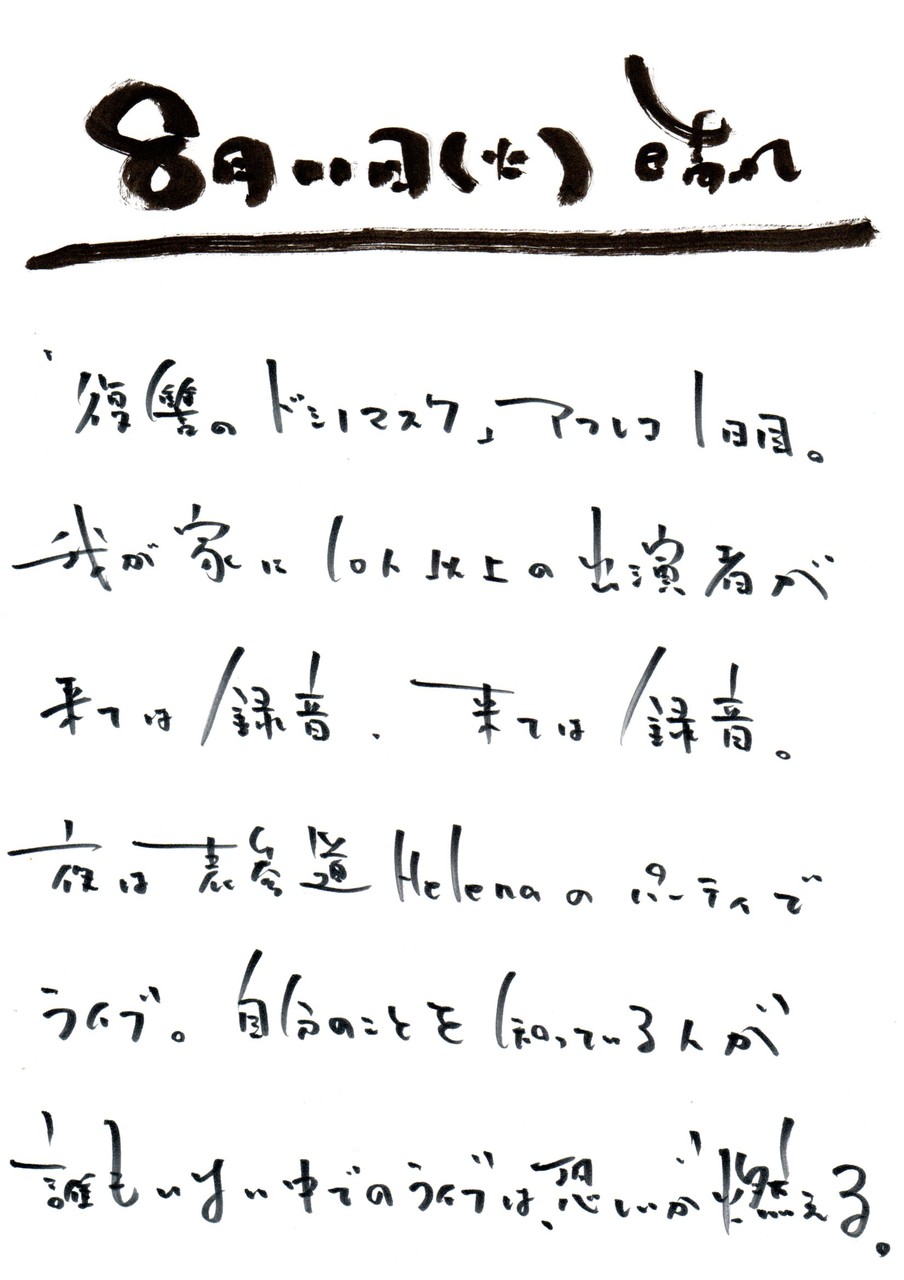 8月11日(火) 晴れ
「復讐のドミノマスク」アフレコ1日目。
我が家に10人以上の出演者が
来ては録音、来ては録音。
夜は表参道Helenaのパーティで
ライブ。自分のことを知っている人が
誰もいない中でのライブは、恐いが燃える。